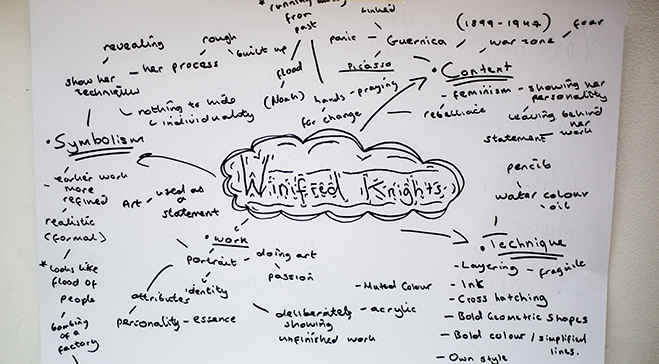 * running away
from
past
linked
revealing
rough
built up
panic - Guernica
(1899-1947)
war zone
fear
show her
technique
her process
Picasso
• Content
flood
(Noah)
hands - praying
for change
- feminism - showing her
personality
- rebelliance
leaving behind
her
work
statement
nothing to hide
individuality
• Symbolism
Winifred Knights
pencils
water colour
oil
- earlier work
more
refined
realistic
(formal)
* looks like
flood of
people
bombing
of a
factory
Art - used as
a
statement
• work
portrait - doing art
passion
identity
attributes
personality - essence
- Muted Colour
deliberately - acrylic
showing
unfinished work
• Technique
- Layering - fragile
- Ink
- Cross hatching
- Bold Geometric Shapes
- Bold colour / simplified
lines.
- Own style